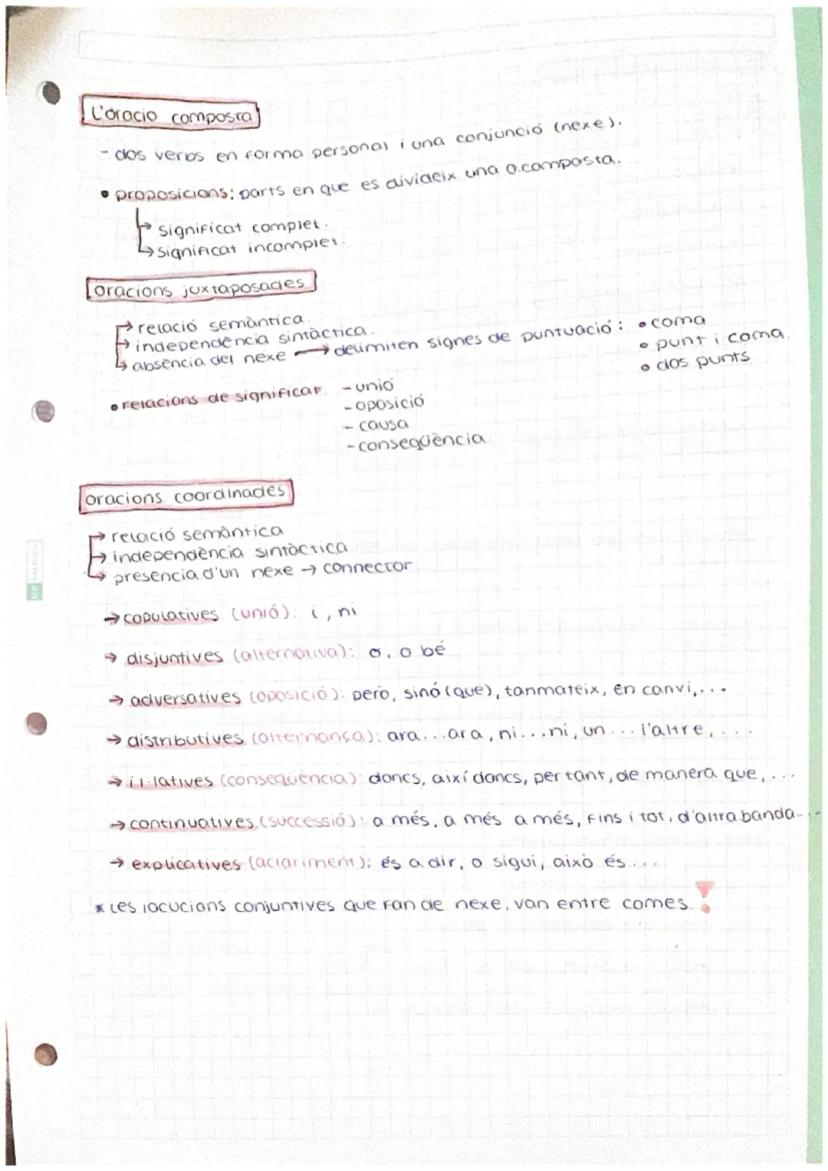 L'oracio composta
- dos verbs en forma personal i una conjunció (nexe).
• proposicions: parts en que es divideix una o.composta.
↳ significat complet.
↳ significat incomplet.
oracions juxtaposades
→ relació semàntica.
→ independència sintàctica.
↳ absència del nexe → delimiten signes de puntuació: • coma
• punt i coma.
• dos punts
• relacions de significat - unió
- oposició
- causa
- conseqüència.
oracions coordinades
→ relació semàntica
→ independència sintàctica
↳ presència d'un nexe → connector
→ copulatives (unió): i, ni
→ disjuntives (alternativa): o, o bé
→ adversatives (oposició): però, sinó (que), tanmateix, en canvi,...
→ distributives (alternança): ara...ara, ni...ni, un... l'altre,...
→ il·latives (conseqüència): doncs, així doncs, per tant, de manera que,...
→ continuatives (successió): a més, a més a més, fins i tot, d'altra banda...
→ explicatives (aclariment): és a dir, o sigui, això és...
* Les locucions conjuntives que fan de nexe, van entre comes. !